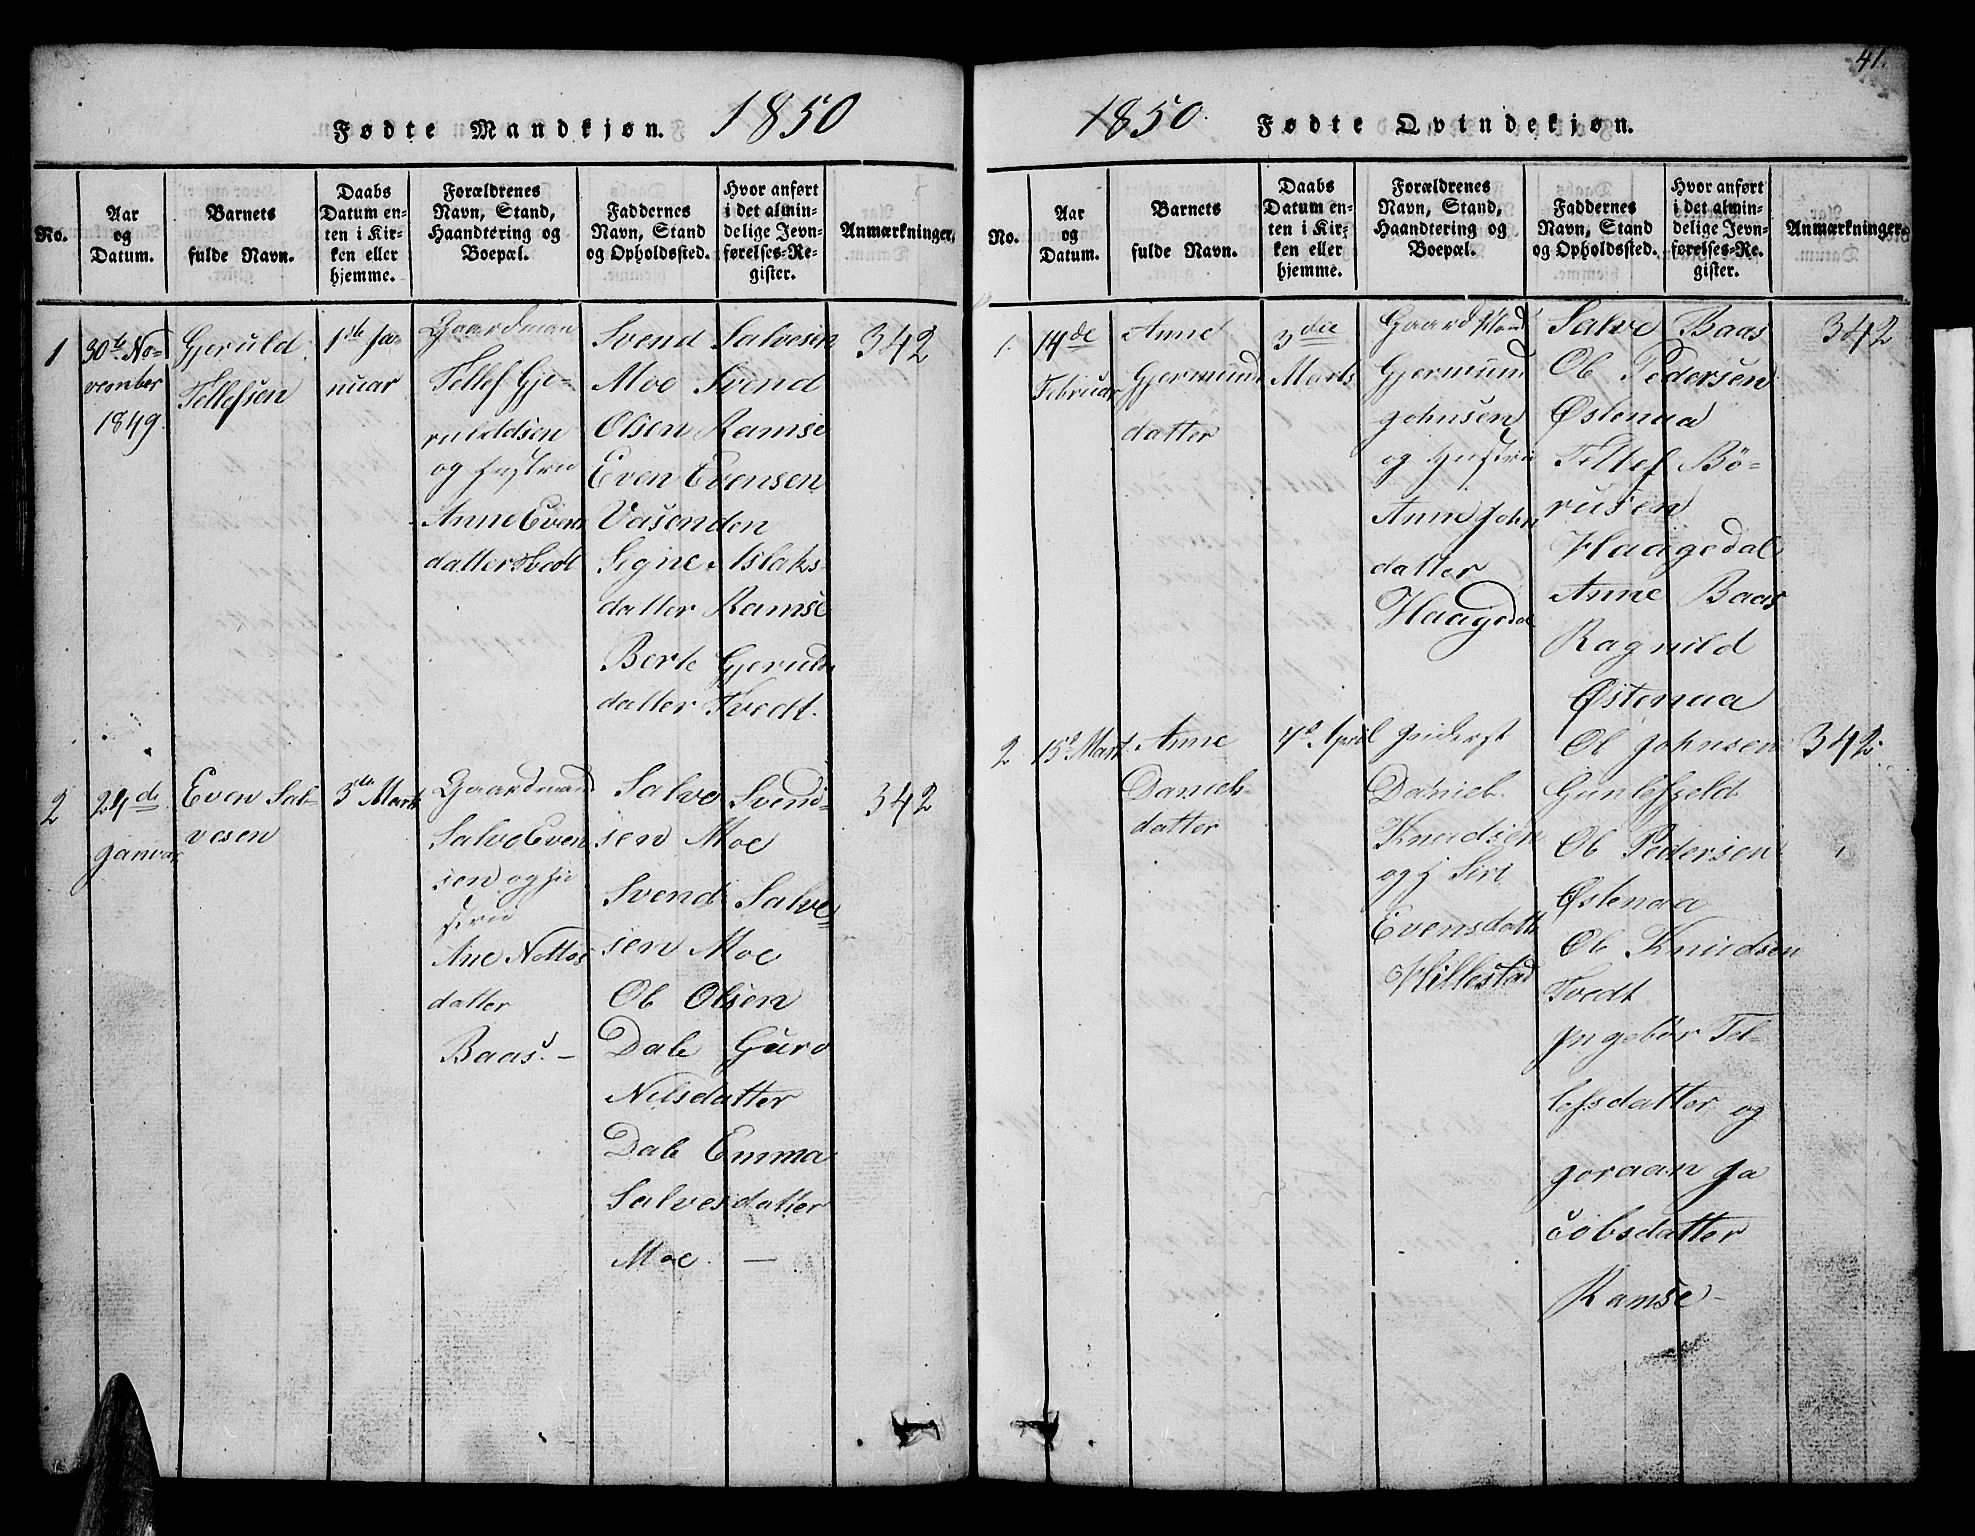 Fødte Mandkjøn. 1850
No.
Aar
og
Datum.
Barnets
fulde Navn.
Daabs
Datum en-
ten i Kir-
ken eller
hjemme.
Forældrenes
Navn, Stand,
Haandtering og
Boepæl.
Faddernes
Navn, Stand
og Opholdssted.
Hvor anført
i det almin-
delige Jevn-
førelses-Re-
gister.
Anmærkninger.
1
30te No-
vember
1849.
Gjeruld
Tellefsen
1ste Ja-
nuar
Gaardman
Tellef Gje-
rulddsen
og Hustru
Anne Evens
datter
Svend Salvesen
Moe Svend
Olsen Ramse
Even Evensen
Vasenden
Signe Aslaks-
datter Ramse
Berte Gjerulds
datter Tvedt.
342
2
24de
Januar
Even Sal-
vesen
3die Marts
Gaardmand
Salve Even
sen og Hu
stru
Ane Nottos
datter
Baas. –
Salve Svend-
sen Moe
Svend Salve-
sen Moe
Ole Olsen
Dale Guro
Nilsdatter
Dale Emma
Salvesdatter
Moe. –
342
41.
1850. Fødte Qvindekjøn.
No.
Aar
og
Datum.
Barnets
fulde Navn.
Daabs
Datum en-
ten i Kir-
ken eller
hjemme.
Forældrenes
Navn, Stand,
Haandtering og
Boepæl.
Faddernes
Navn, Stand
og Opholdssted.
Hvor anført
i det almin-
delige Jevn-
førelses-Re-
gister.
Anmærkninger.
1.
14de
Februar
Anne
Gjermund
datter
3die
Marts
Gaard Mand
Gjermund
Johnsen
og Hustru
Anne John
datter
Haagedal
Salve Baas
Ole Pedersen
Østenaa
Tellef Bø-
rusen
Haagedal
Anne Baas
Ragnild
Østenaa
342
2
15d Mart
Anne
Daniels-
datter
7d April
Inderst
Daniel
Knudsen
og h Siri
Evensdatt
Hillestad
Ole Johnsen
Gunlefjeld
Ole Pedersen
Østenaa
Ole Knudsen
Tvedt
Ingebør Tel-
lefsdatter og
Joraan Ja
cobsdatter
Ramse –
342.